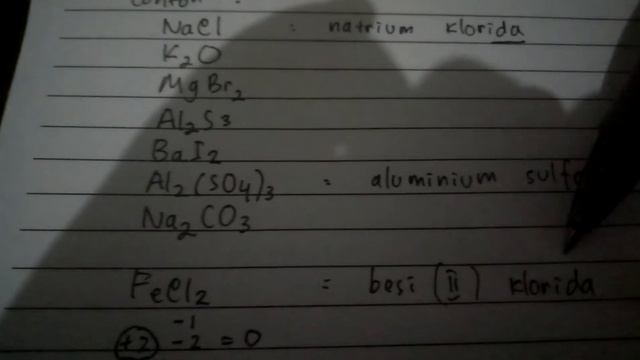 contoh :
NaCl : natrium klorida
K2O
MgBr2
Al2S3
BaI2
Al2(SO4)3 : aluminium
Na2CO3
FeCl2 = besi (II) klorida
-1
+2 -2 = 0